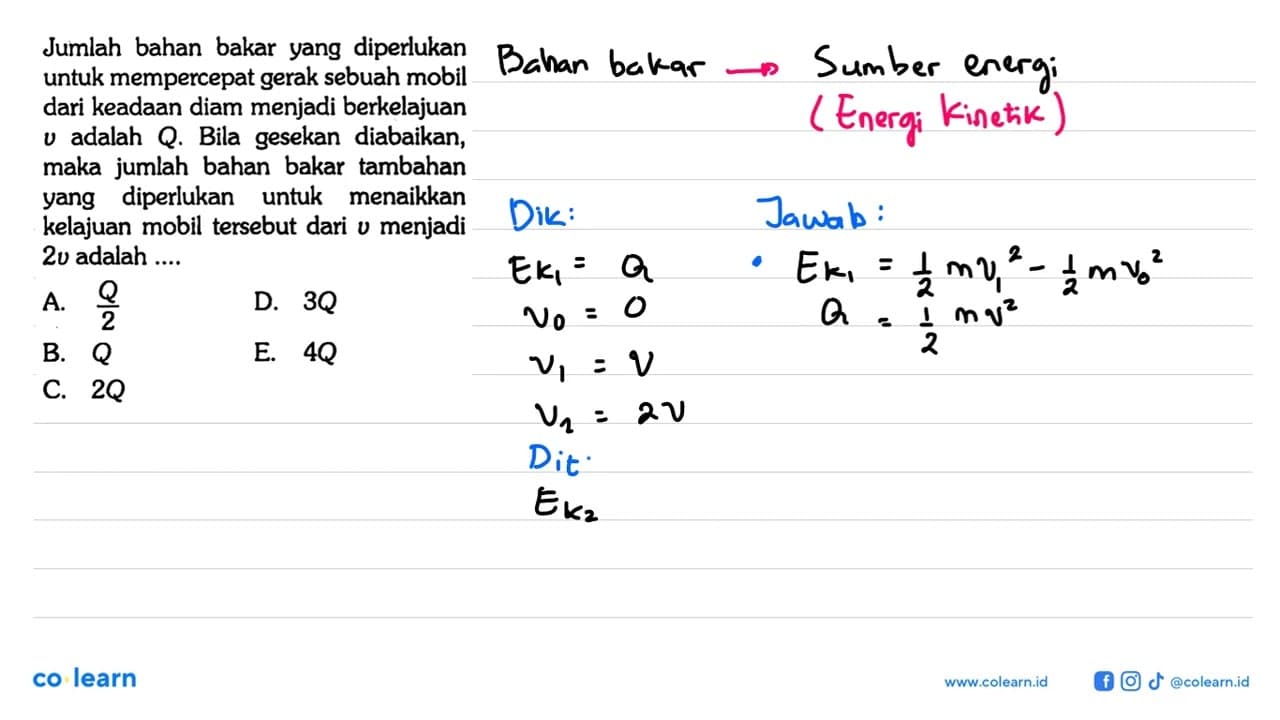 Jumlah bahan bakar yang diperlukan
untuk mempercepat gerak sebuah mobil
dari keadaan diam menjadi berkelajuan
v adalah Q. Bila gesekan diabaikan,
maka jumlah bahan bakar tambahan
yang diperlukan untuk menaikkan
kelajuan mobil tersebut dari v menjadi
2v adalah ....
A. Q/2
B. Q
C. 2Q
D. 3Q
E. 4Q
Bahan bakar → Sumber energi
(Energi Kinetik)
Dik:
Ek₁ = Q
v₀ = 0
v₁ = v
v₂ = 2v
Dit:
Ek₂
Jawab:
• Ek₁ = 1/2 mv₁² - 1/2 mv₀²
Q = 1/2 mv²
co learn
www.colearn.id
@colearn.id